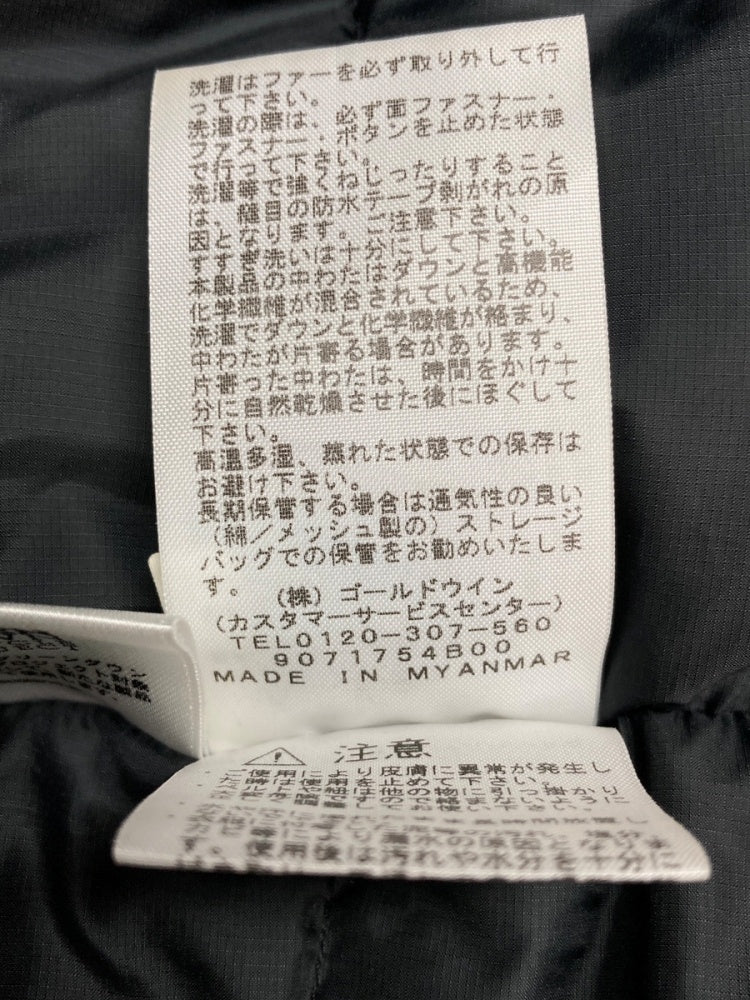 洗濯はファーを必ず取り外して行
って下さい。
洗濯の際は、必ず面ファスナー・
ファスナー、ボタンを止めた状態
で行って下さい。
洗濯等で強くねじったりすること
は、縫目の防水テープ剥がれの原
因となります。ご注意下さい。
すすぎ洗いは十分にして下さい。
本製品の中わたはダウンと高機能
化学繊維が混合されているため、
洗濯でダウンと化学繊維が絡まり、
中わたが片寄る場合があります。
片寄った中わたは、時間をかけ十
分に自然乾燥させた後にほぐして
下さい。
高温多湿、蒸れた状態での保存は
お避け下さい。
長期保管する場合は通気性の良い
(綿/メッシュ製の)ストレージ
バッグでの保管をお勧めいたしま
す。
(株)ゴールドウイン
(カスタマーサービスセンター)
TEL0120-307-560
9071754B00
MADE IN MYANMAR
注意
使用により皮膚に異常が発生し
使用後は汚れや水分を十分に